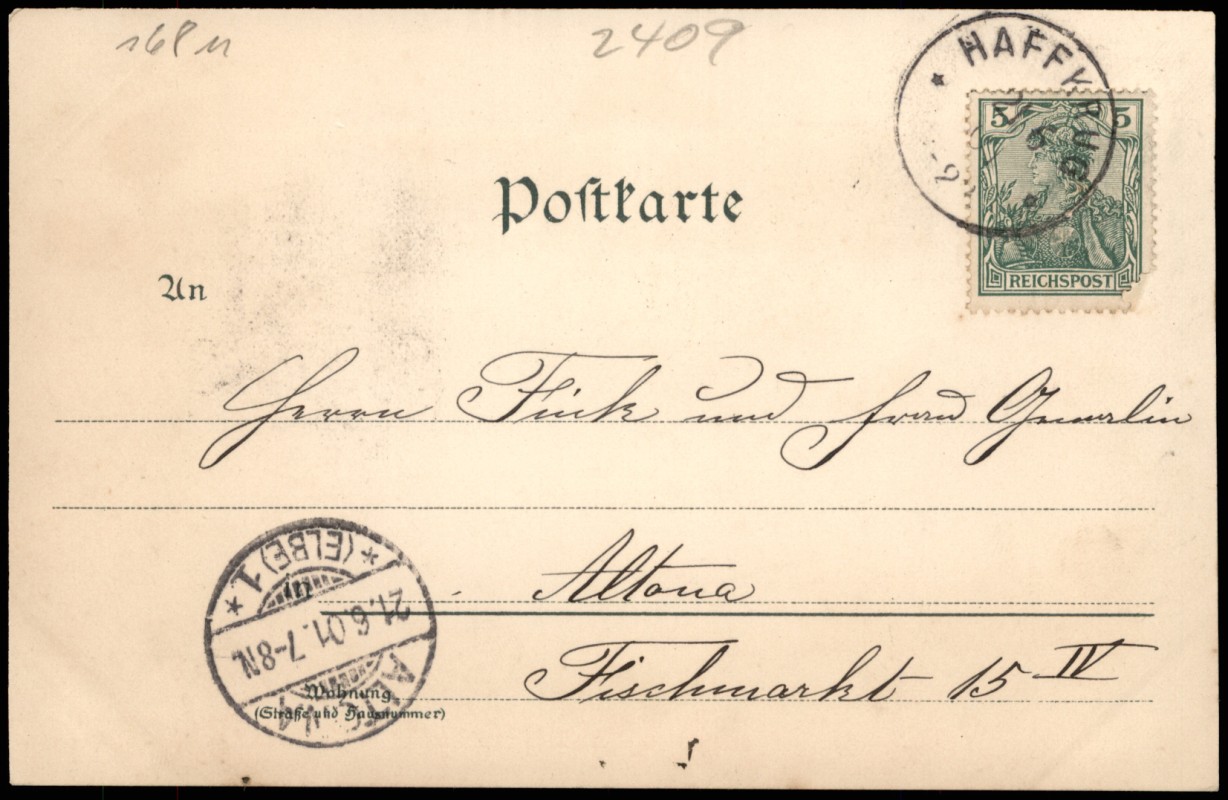 2409
HAFFKRUG
5 5
REICHSPOST
Postkarte
An
Herrn Fick und Frau Gemalin
Altona
Fischmarkt 15 IV
ALTONA
21.6.01. 7-8N.
* (ELBE) 1. *
Wohnung
(Straße und Hausnummer)